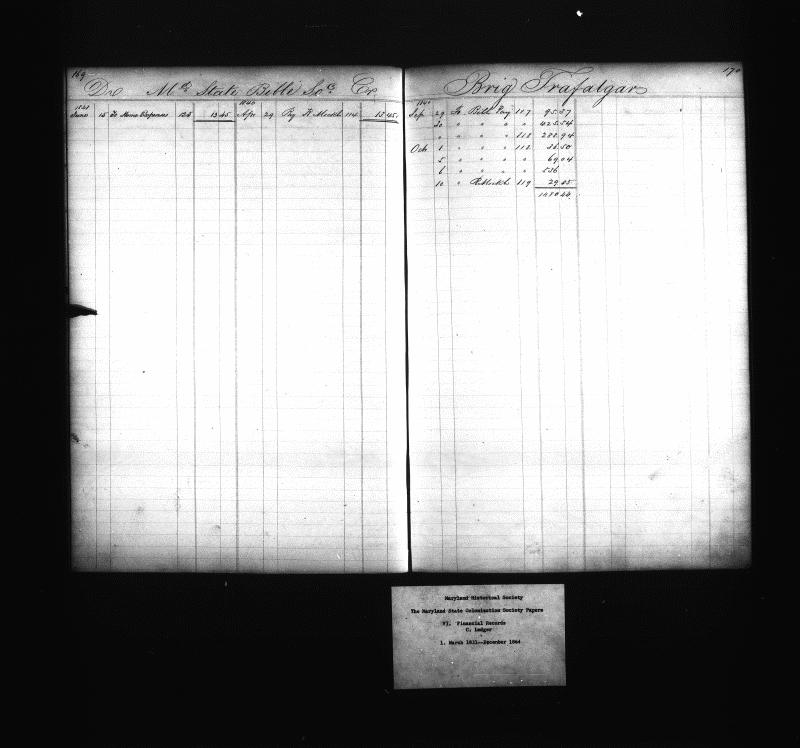 169
Dr Md. State Bible Socy. Cr
1841 1840
June 15 To Home Expenses 125 13.45 Apr 29 By R Mickle 114 13.45
170
Brig Trafalgar
1840
Sep 29 To Bills Pay 117 95.37
30 " " " " 425.54
" " " " 118 288.94
Oct 1 " " " " 118
5 " " " " 69.04
6 " " " " 536
10 " R Mickle 119 29.05
Maryland Historical Society
The Maryland State Colonization Society Papers
VI. Financial Records
C. Ledger
1. March 1831--December 1864